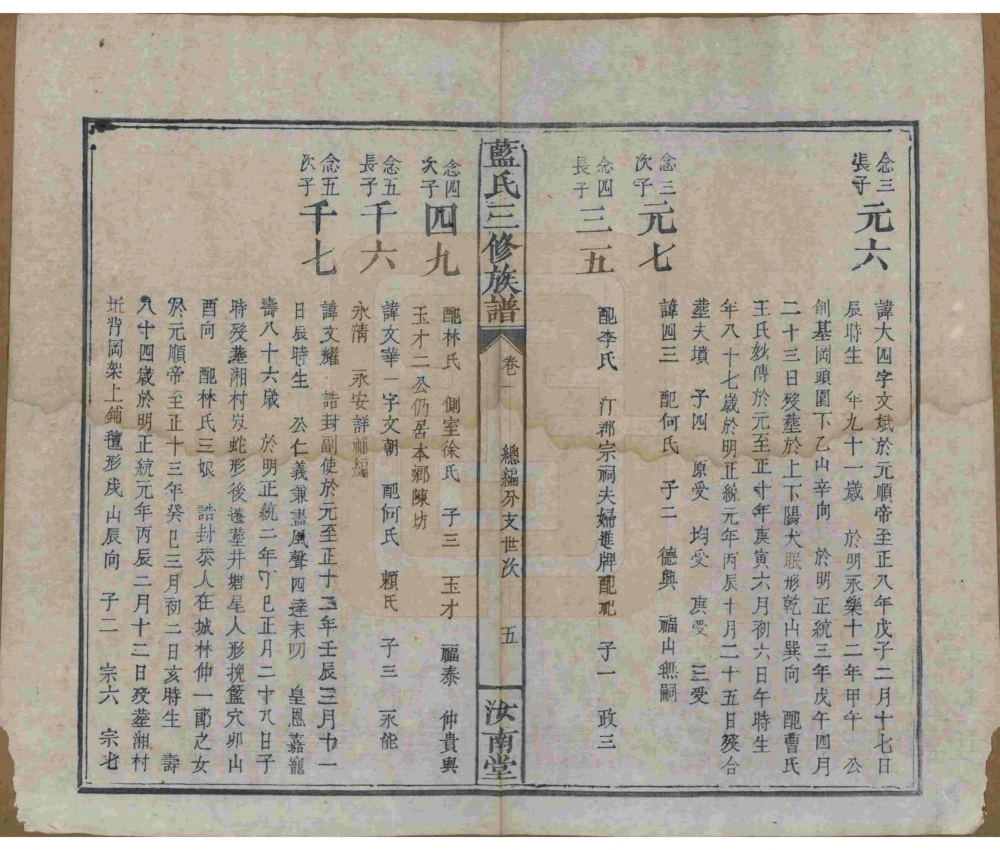 念三
張子
元六
諱大四字文斌於元順帝至正八年戊子二月十七日
辰時生　年九十一歲　於明永樂十二年甲午　公
創基岡頭園下乙山辛向　於明正統三年戊午四月
二十三日歿塟於上下陽犬眠形乾山巽向　配曹氏
王氏妙傳於元至正十年庚寅六月初六日午時生
年八十七歲於明正統元年丙辰十月二十五日歿合
塟夫墳　子四　原受　均受　庚受　三受
念三
次子
元七
諱四三　配何氏　子二　德興　福山無嗣
念四
長子
三五
配李氏　汀郡宗祠夫婦進牌配祀　子一　政三
藍氏三修族譜
卷一
總編分支世次
五
汝南堂
念四
次子
四九
配林氏　側室徐氏　子三　玉才　福泰　仲貴與
玉才二公仍居本鄉陳坊
念五
長子
千六
諱文華一字文朝　配何氏　賴氏　子三　永能
永清　永安詳補編
念五
次子
千七
諱文耀　誥封副使於元至正十二年壬辰三月十一
日辰時生　公仁義兼盡風聲四達末叨　皇恩嘉寵
壽八十六歲　於明正統二年丁巳正月二十八日子
時歿塟湘村岌蛇形後遷塟井塘星人形挽籃穴卯山
酉向　配林氏三娘　誥封恭人在城林仲一郎之女
於元順帝至正十三年癸巳三月初二日亥時生　壽
八十四歲於明正統元年丙辰二月十二日歿塟湘村
坵背岡架上鋪氊形戌山辰向　子二　宗六　宗七